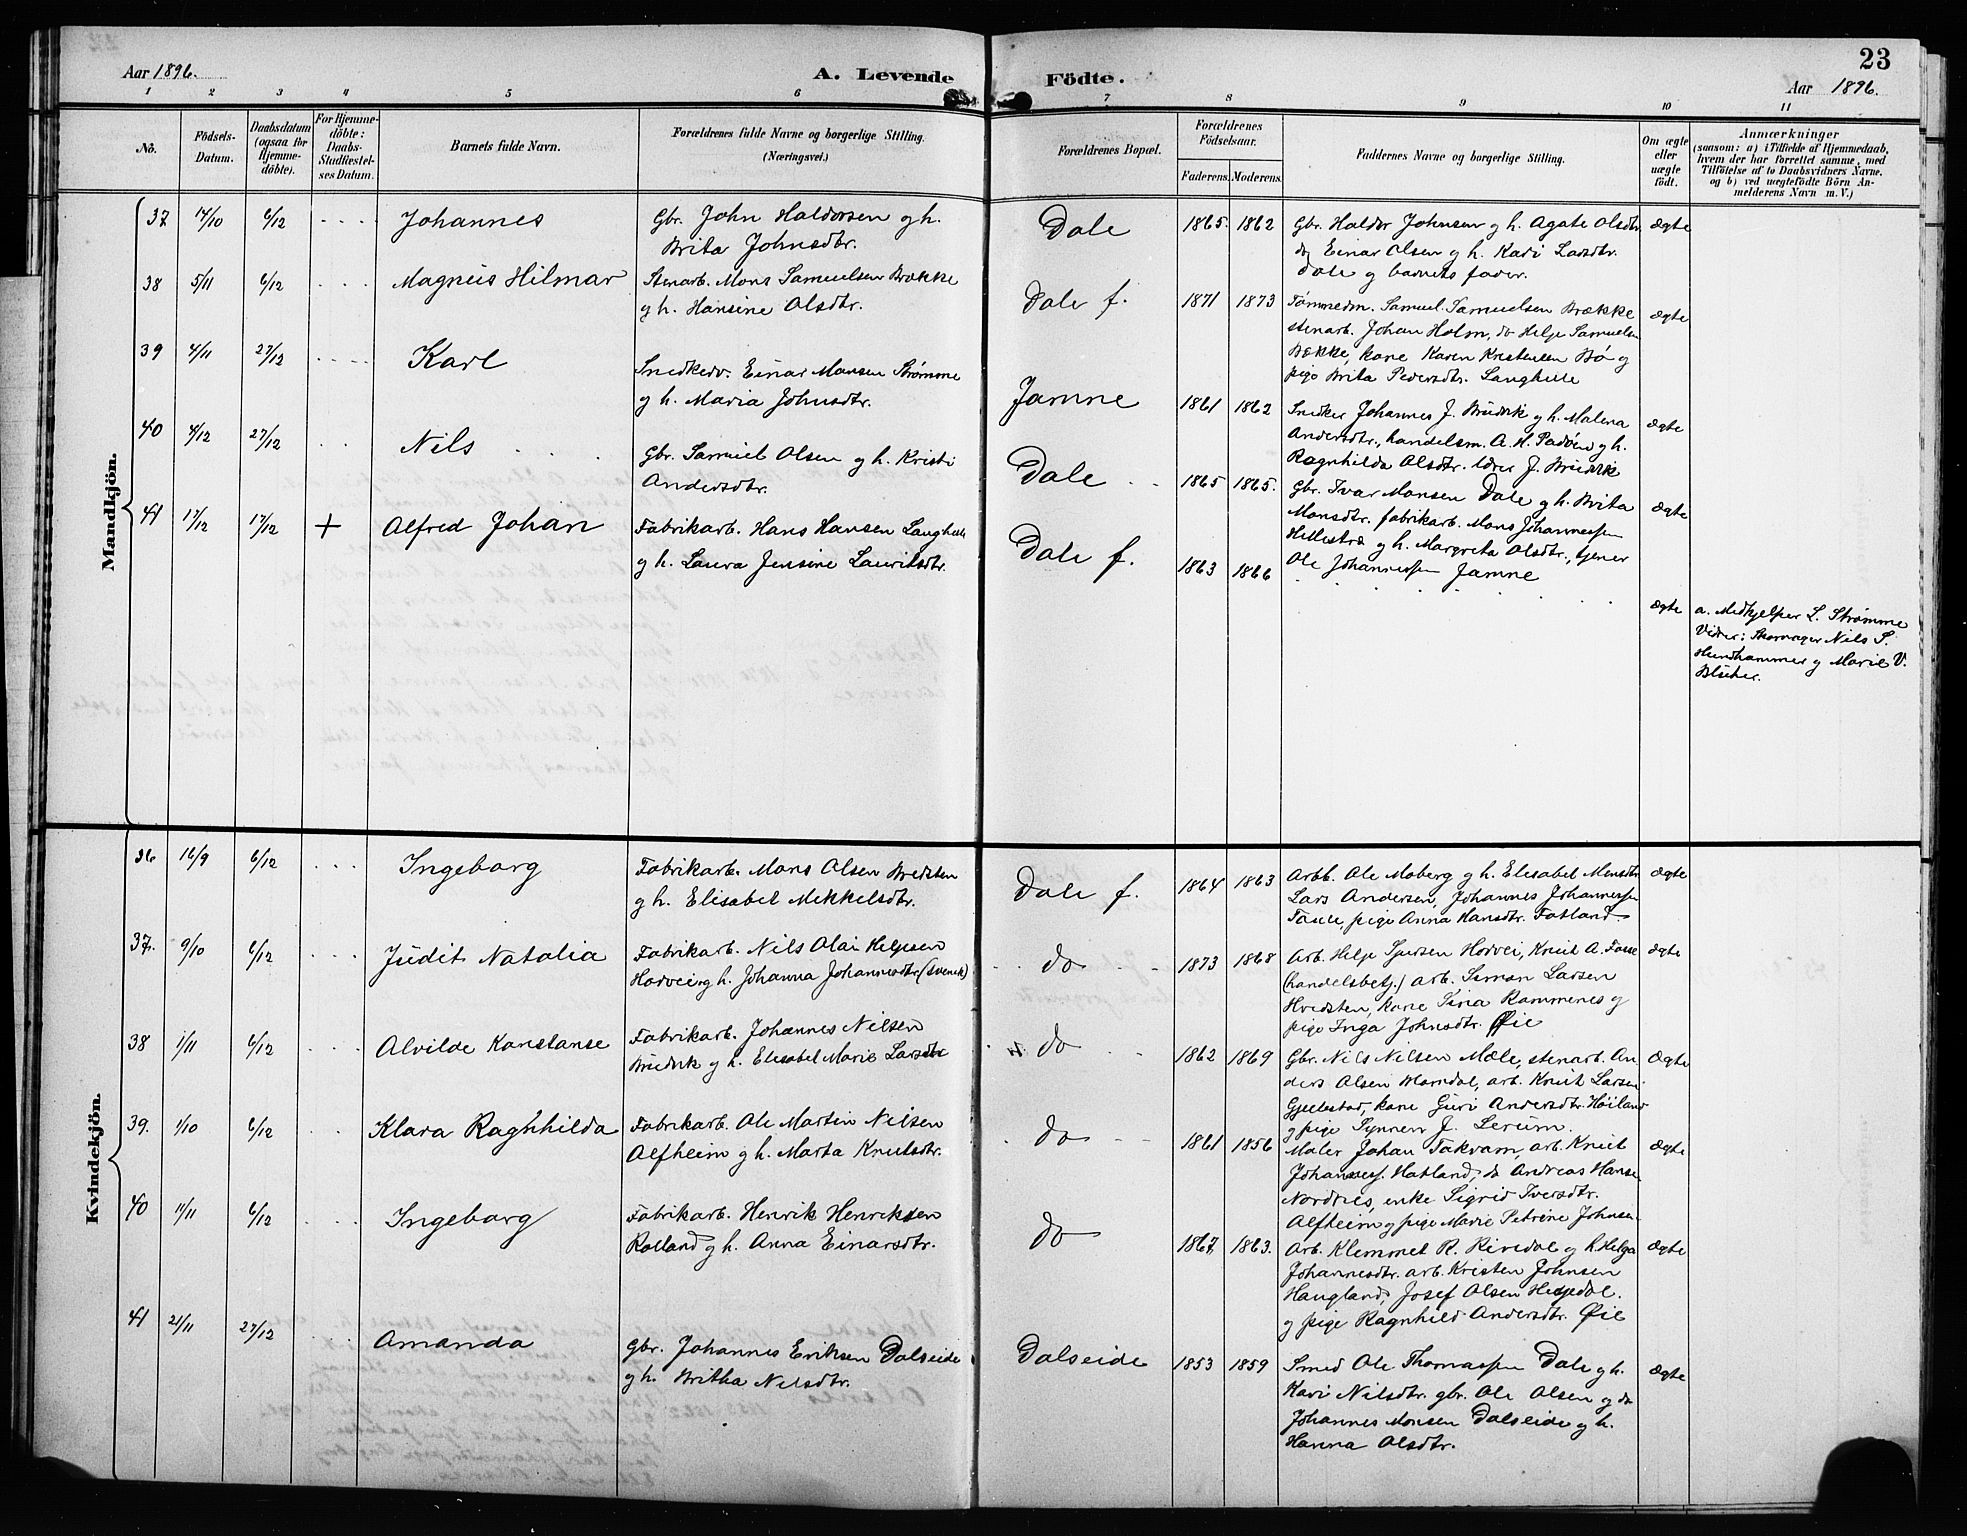 23
Aar 1896.
A. Levende Födte.
Aar 1896.
1 2 3 4 5 6 7 8 9 10 11
No.
Födsels-Datum.
Daabsdatum (ogsaa for Hjemme-döbte).
For Hjemme-döbte: Daabs-Stadfæstel-ses Datum.
Barnets fulde Navn.
Forældrenes fulde Navne og borgerlige Stilling. (Næringsvei.)
Forældrenes Bopæl.
Forældrenes Födselsaar.
Faderens. Moderens.
Faddernes Navne og borgerlige Stilling.
Om ægte eller uægte födt.
Anmærkninger
(saasom: a) i Tilfælde af Hjemmedaab,
hvem der har forrettet samme, med
Tilföielse af to Daabsvidners Navne.
og b) ved uægtefödte Börn An-
melderens Navn m. V.)
Mandkjön.
37 14/10 6/12 Johannes
Gbr. John Haldorsen og h.
Brita Johnsdtr.
Dale 1865. 1862
Gbr. Haldor Johnsen og h. Agate Olsdtr.
do Einar Olsen og h. Kari Larsdtr.
Dale og barnets fader.
ægte
38 5/11 6/12 Magnus Hilmar
Stenarb. Mons Samuelsen Brække
og h. Hansine Olsdtr.
Dale f. 1871 1873
Tømmedm. Samuel Samuelsen Brække
stenarb. Johan Holm, do Helje Samuelsen
Brække, kone Karen Kristensen Bø og
pige Brita Pedersdtr. Langhelle
ægte
39 4/11 27/12 Karl
Snedker. Einar Monsen Strømme
og h. Maria Johnsdtr.
Jamne 1861 1862
Snedker Johannes J. Brudvik og h. Malena
Andersdtr., handelsm. A. H. Padøen og h.
Ragnhilda Olsdtr. J. Brudvik
ægte
40 4/12 27/12 Nils
Gbr. Samuel Olsen og h. Kristi
Andersdtr.
Dale 1865 1865.
Gbr. Ivar Monsen Dale og h. Brita
Monsdtr. fabrikarb. Mons Johannessen
Hellestræ og h. Margreta Olsdtr., tjener
Ole Johannessen Jamne
ægte
41 17/12 17/12 + Alfred Johan
Fabrikarb. Hans Hansen Langhelle
og h. Laura Jensine Lauritsdtr.
Dale f. 1863 1866
ægte
a. Medhjelper L. Strømme
Vidner: Skomager Nils S.
Hundhammer og Marie V.
Blücher.
Kvindekjön.
36 16/9 6/12 Ingeborg
Fabrikarb. Mons Olsen Bredsten
og h. Elisabet Mikkelsdtr.
Dale f. 1864 1863
Arb. Ole Moberg og h. Elisabet Monsdtr.
Lars Andersen, Johannes Johannessen
Taule, pige Anna Hansdtr. Fatland
ægte
37. 9/10 6/12 Judit Natalia
Fabrikarb. Nils Olai Helgesen
Horvei og h. Johanna Johannesdtr. (svensk)
do 1873 1868
Arb. Helje Sjursen Horvei, Knut A. Fosse
(handelsbetj.) arb. Simon Larsen
Hvidsten, kone Sina Rommenes og
pige Inga Johnsdtr. Øie
ægte
38 1/11 6/12 Alvilde Konstanse
Fabrikarb. Johannes Nilsen
Brudvik og h. Elisabet Marie Larsdtr
do 1862 1869
Gbr. Nils Nilsen Mæle, stenarb. An-
ders Olsen Morndal, arb. Knut Larsen
Gjellestad, kone Guri Andersdtr. Høiland
og pige Synnev J. Lerum.
Ægte
39. 1/10 6/12 Klara Ragnhilda
Fabrikarb. Ole Martin Nilsen
Alfheim og h. Marta Knutsdtr.
do 1861 1856
Maler Johan Takvam, arb. Knut
Johanness. Hatland, do Andreas Hansen
Nordnes, enke Sigrid Iversdtr.
Alfheim og pige Marie Petrine Johnsen.
ægte
40 11/11 6/12 Ingeborg
Fabrikarb. Henrik Henriksen
Rolland og h. Anna Einarsdtr.
do 1867 1863.
Arb. Klemmet R. Rivedal og h. Helga
Johannesdtr. arb. Kristen Johnsen
Haugland, Josef Olsen Hesjedal.
og pige Ragnhild Andersdtr. Øie
ægte
41 21/11 27/12 Amanda
Gbr. Johannes Eriksen Dalseide
og h. Britha Nilsdtr.
Dalseide 1853 1859
Smed Ole Thomassen Dale og h.
Kari Nilsdtr. gbr. Ole Olsen og do
Johannes Monsen Dalseide og h.
Hanna Olsdtr.
ægte